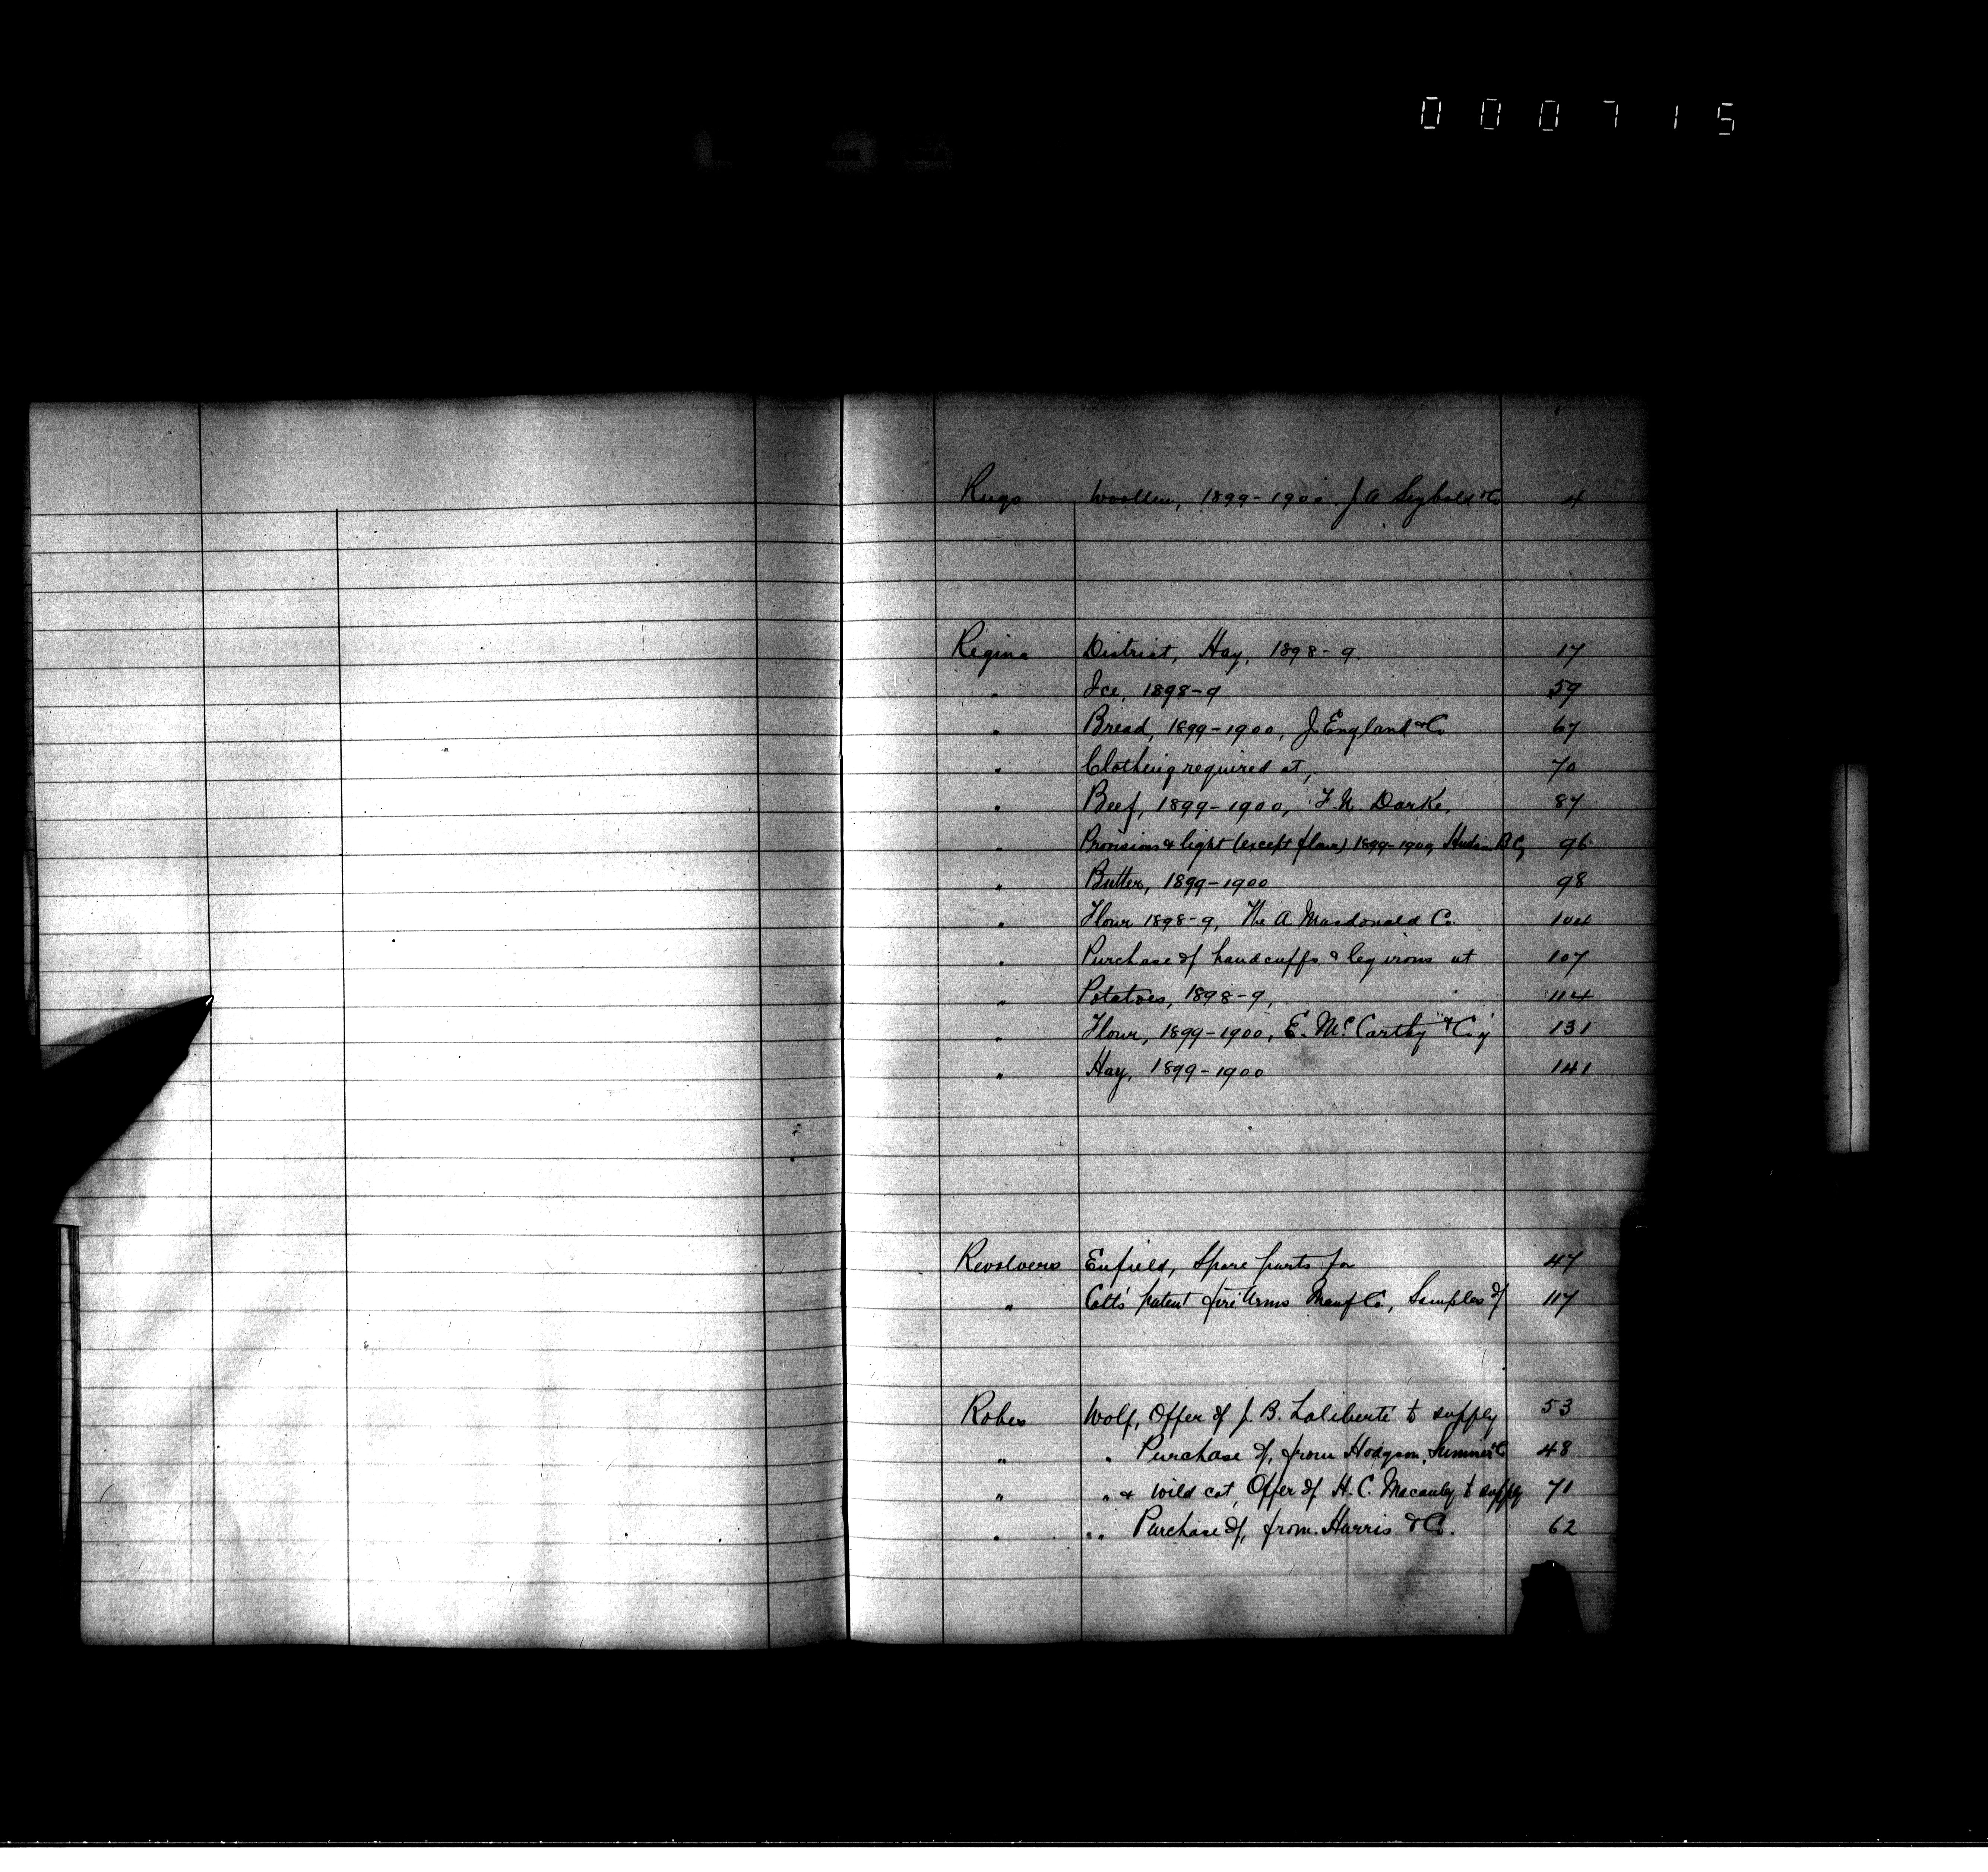 000715
Rugs Woollen, 1899-1900 J A Seybold & Co 4
Regina District, Hay, 1898-9. 17
" Ice, 1898-9 59
" Bread, 1899-1900, J. England & Co 67
" Clothing required at, 70
" Beef, 1899-1900, F. N. Darke, 87
" Provisions & light (except flour) 1899-1900, Hudson B Cy 96
" Butter, 1899-1900 98
" Flour 1898-9, The A Macdonald Co. 104
" Purchase of handcuffs & leg irons at 107
" Potatoes, 1898-9, 114
" Flour, 1899-1900, E. McCarthy & Coy 131
" Hay, 1899-1900 141
Revolvers Enfield, Spare parts for 47
" Colts patent fire Arms Manuf Co, Samples of 117
Robes Wolf, Offer of J. B. Laliberté to supply 53
" " Purchase of, from Hodgson, Sumner & Co 48
" " & Wild cat, Offer of H. C. Macaulay to supply 71
" " Purchase of, from Harris & Co. 62